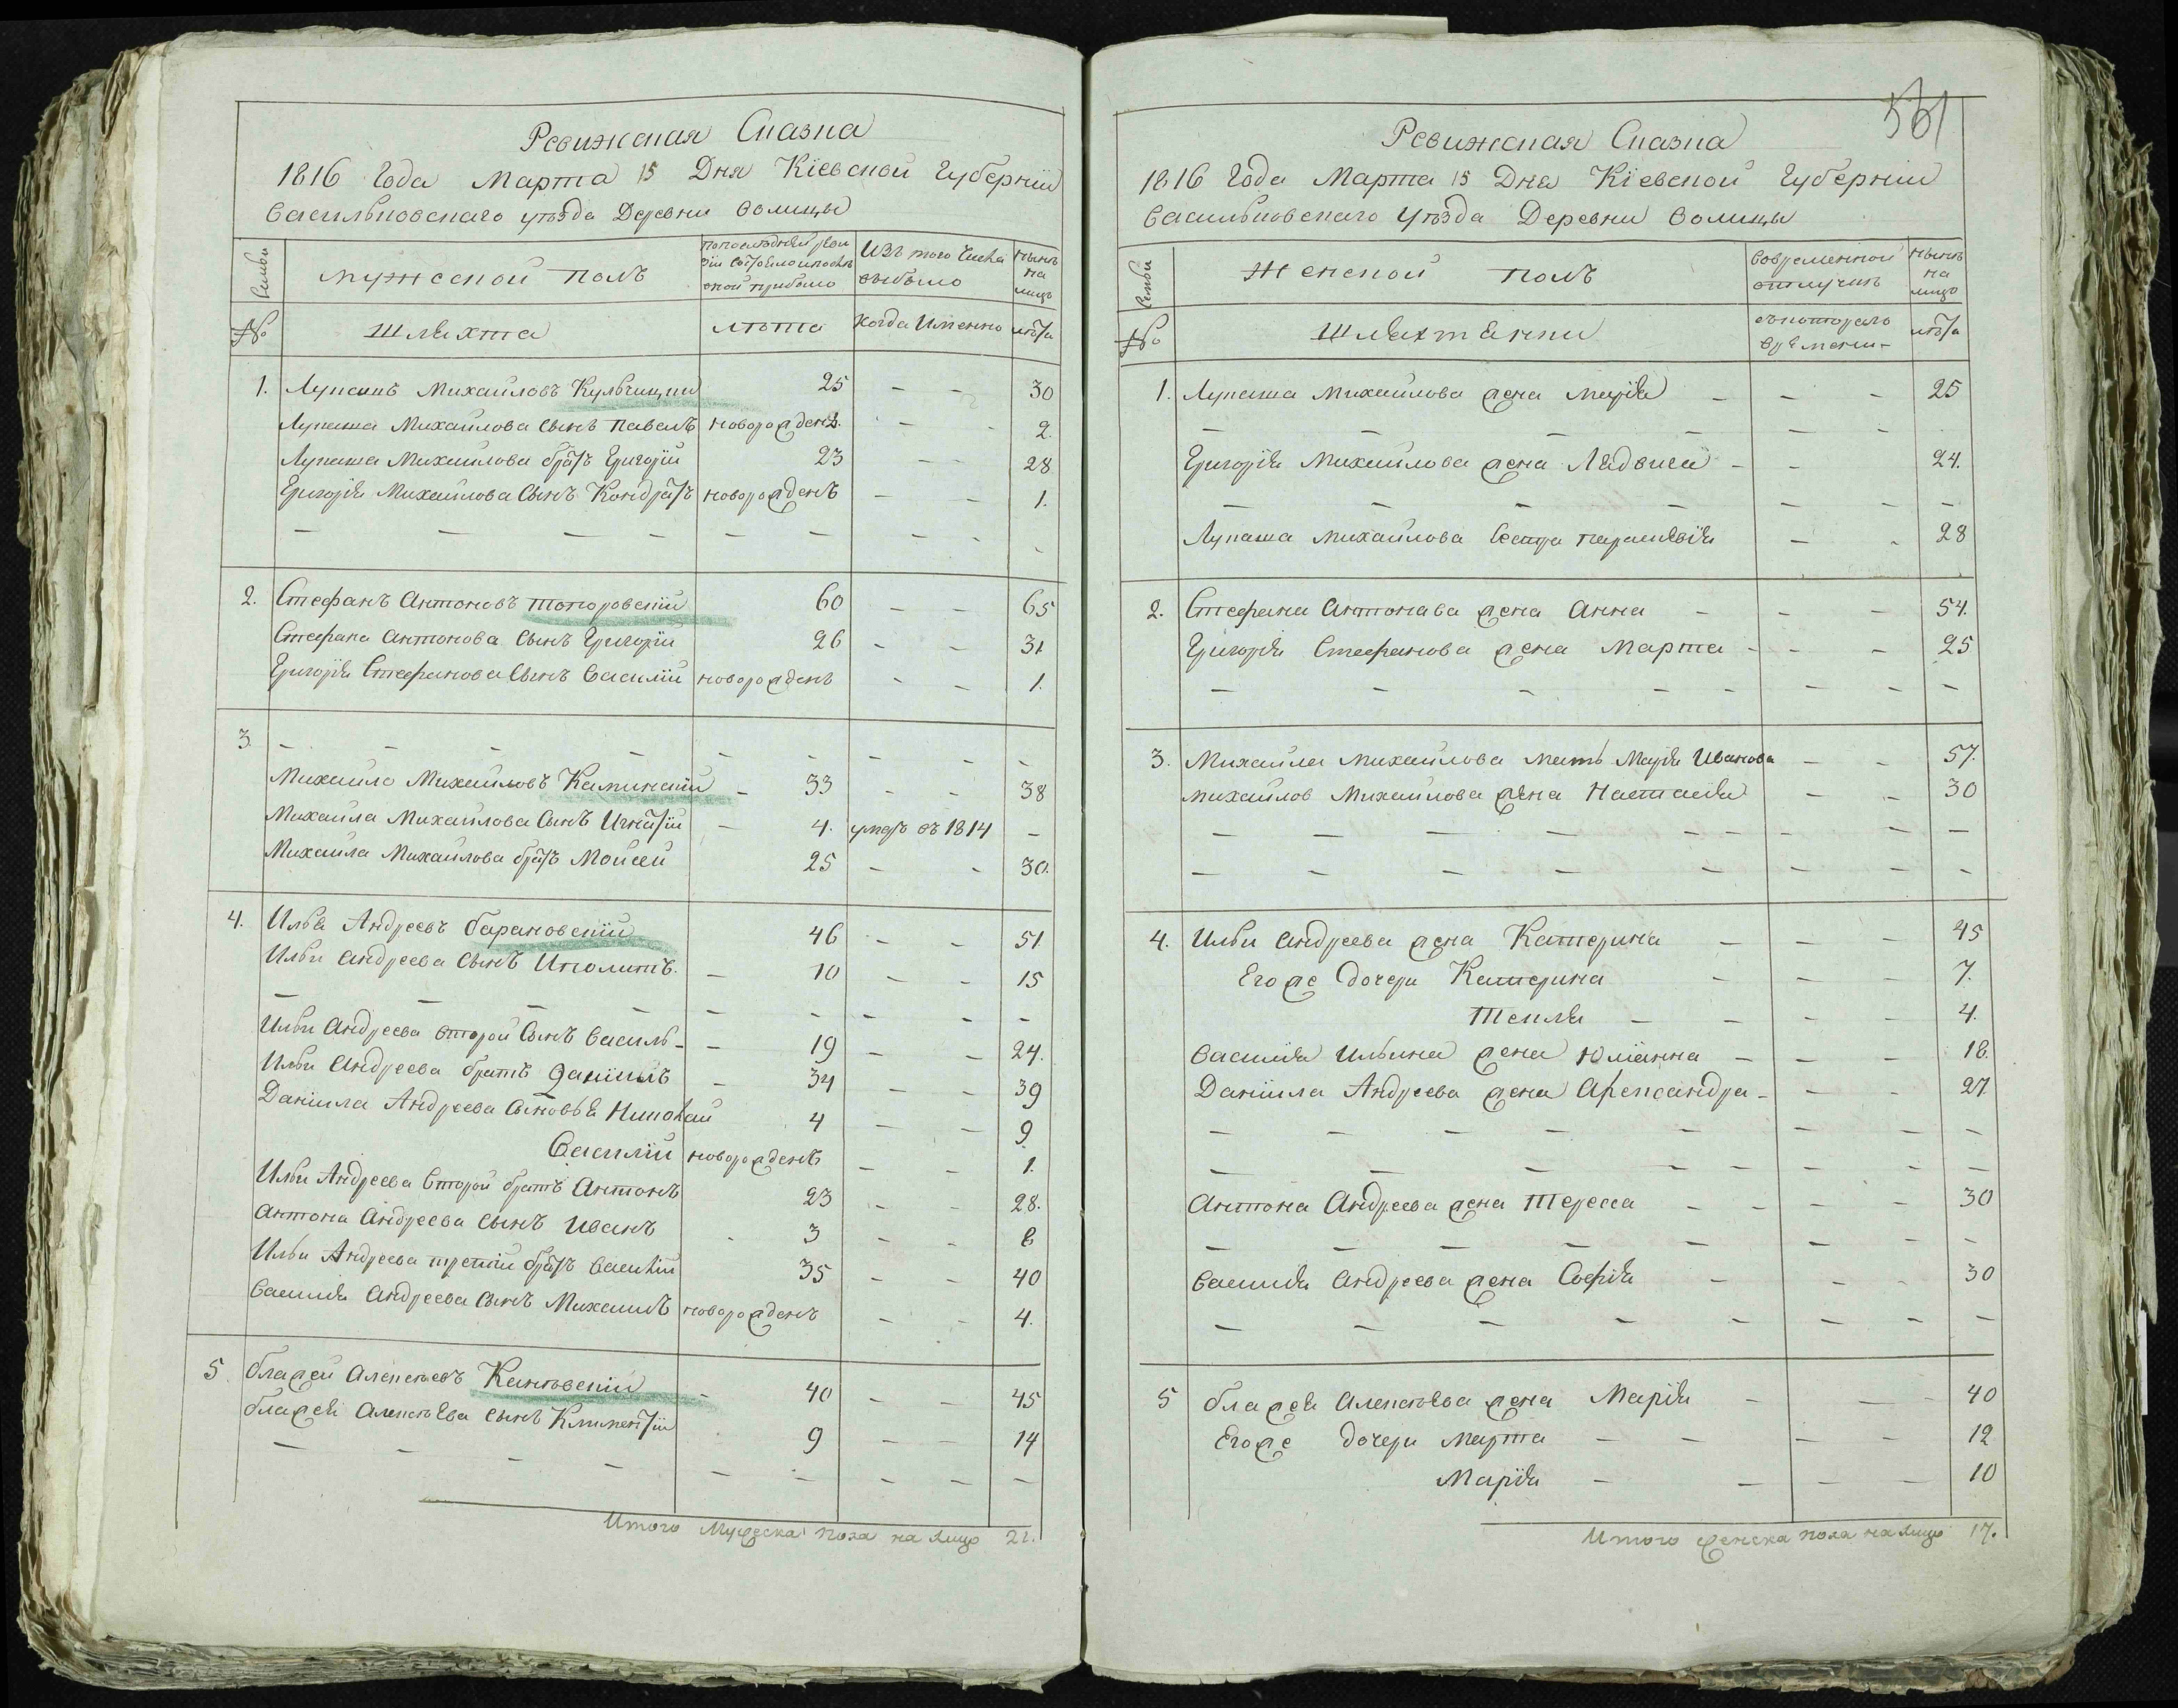 Ревижская Сказка
1816 Года Марта 15 Дня Кіевской Губерніи
Васильковскаго уѣзда Деревни Волицы
Семьи
мужеской полъ
Изъ того Числа выбыло
Нынѣ на лицо
№
Шляхта
лѣта
Когда Именно
лѣта
1. Лукашъ Михайловъ Кульчицки 25 - - 30
Лукаша Михайлова Сынъ павелъ новорожденъ - - 2.
Лукаша Михайлова братъ Григорій 23 - - 28
Григорія Михайлова Сынъ Кондратъ новорожденъ - - 1.
2. Стефанъ Антоновъ Топоровскій 60 - - 65
Стефана Антонова Сынъ Григорій 26 - - 31
Григорія Стефанова Сынъ Василій новорожденъ - - 1.
3.
Михайло Михайловъ Каминскій - 33 - - 38
Михайла Михайлова Сынъ Игнатій - 4. умеръ въ 1814 -
Михайла Михайлова братъ Мойсей 25 - - 30.
4. Илья Андреевъ барановскій 46 - - 51
Ильи Андреева Сынъ Иполитъ. - 10 - - 15
Ильи Андреева второй Сынъ Василь - - 19 - - 24.
Ильи Андреева братъ Даніилъ - 34 - - 39
Даніила Андреева Сыновья Николай 4 - - 9
Василій новорожденъ - - 1.
Ильи Андреева Второй братъ Антонъ 23 - - 28.
Антона Андреева Сынъ Иванъ - 3 - - 8
Ильи Андреева третій братъ Василій 35 - - 40
Василія Андреева Сынъ Михаилъ новорожденъ - - 4.
5. блажей Алексѣевъ - 40 - - 45
блажея Алексѣева Сынъ Климентій 9 - - 14
Итого Мужеска пола на лицо 21.
531
Ревижская Сказка
1816 Года Марта 15 Дня Кіевской Губерніи
Васильковскаго Уѣзда Деревни Волицы
Семьи
Женской полъ
Вовременной отлучкѣ
Нынѣ на лицо
№
Шляхтянки
съ котораго времени
лѣта
1. Лукаша Михайлова жена Марія - - - 25
Григорія Михайлова жена Людвися - - 24.
Лукаша Михайлова Сестра параскевія - - 28
2. Стефана Антонова жена Анна - - - 54.
Григорія Стефанова жена Марта - - - 25
3. Михайла Михайлова мать Марія Иванова - - 57.
Михайлов Михайлова жена Настасія - - 30
4. Ильи Андреева жена Катерина - - - 45
Егоже дочери Катерина - - - 7.
Текля - - - - 4.
Василія Ильина жена Юліянна - - - 18.
Даніила Андреева жена Александра - - - 27.
Антона Андреева жена Тересса - - - - 30
Василія Андреева жена Софія - - - 30
5 блажея Алексѣева жена Марія - - - 40
Егоже дочери Марта - - - - 12
Марія - - - - 10
Итого женска пола на лицо 17.